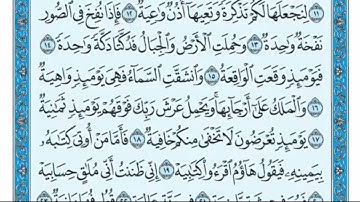 ١١ لِنَجْعَلَهَا لَكُمْ تَذْكِرَةً وَتَعِيَهَا أُذُنٌ وَاعِيَةٌ ١٢ فَإِذَا نُفِخَ فِي الصُّورِ
نَفْخَةٌ وَاحِدَةٌ ١٣ وَحُمِلَتِ الْأَرْضُ وَالْجِبَالُ فَدُكَّتَا دَكَّةً وَاحِدَةً ١٤
فَيَوْمَئِذٍ وَقَعَتِ الْوَاقِعَةُ ١٥ وَانشَقَّتِ السَّمَاءُ فَهِيَ يَوْمَئِذٍ وَاهِيَةٌ
١٦ وَالْمَلَكُ عَلَىٰ أَرْجَائِهَا وَيَحْمِلُ عَرْشَ رَبِّكَ فَوْقَهُمْ يَوْمَئِذٍ ثَمَٰنِيَةٌ
١٧ يَوْمَئِذٍ تُعْرَضُونَ لَا تَخْفَىٰ مِنكُمْ خَافِيَةٌ ١٨ فَأَمَّا مَنْ أُوتِيَ كِتَٰبَهُ
بِيَمِينِهِ فَيَقُولُ هَاؤُمُ اقْرَءُوا كِتَٰبِيَهْ ١٩ إِنِّي ظَنَنتُ أَنِّي مُلَٰقٍ حِسَابِيَهْ